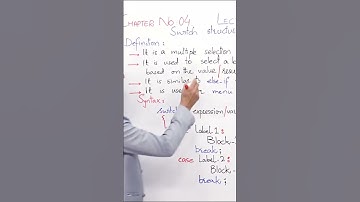 CHAPTER No 04 LEC
Switch structu
Definition:
→ It is a multiple selection
→ It is used to select a b
based on the value/resu
→ It is similar to else-if
→ It is use menu
Syntax:
switch expression/va
{
Label1:
Block-
break;
case Label-2:
Bloc
break;